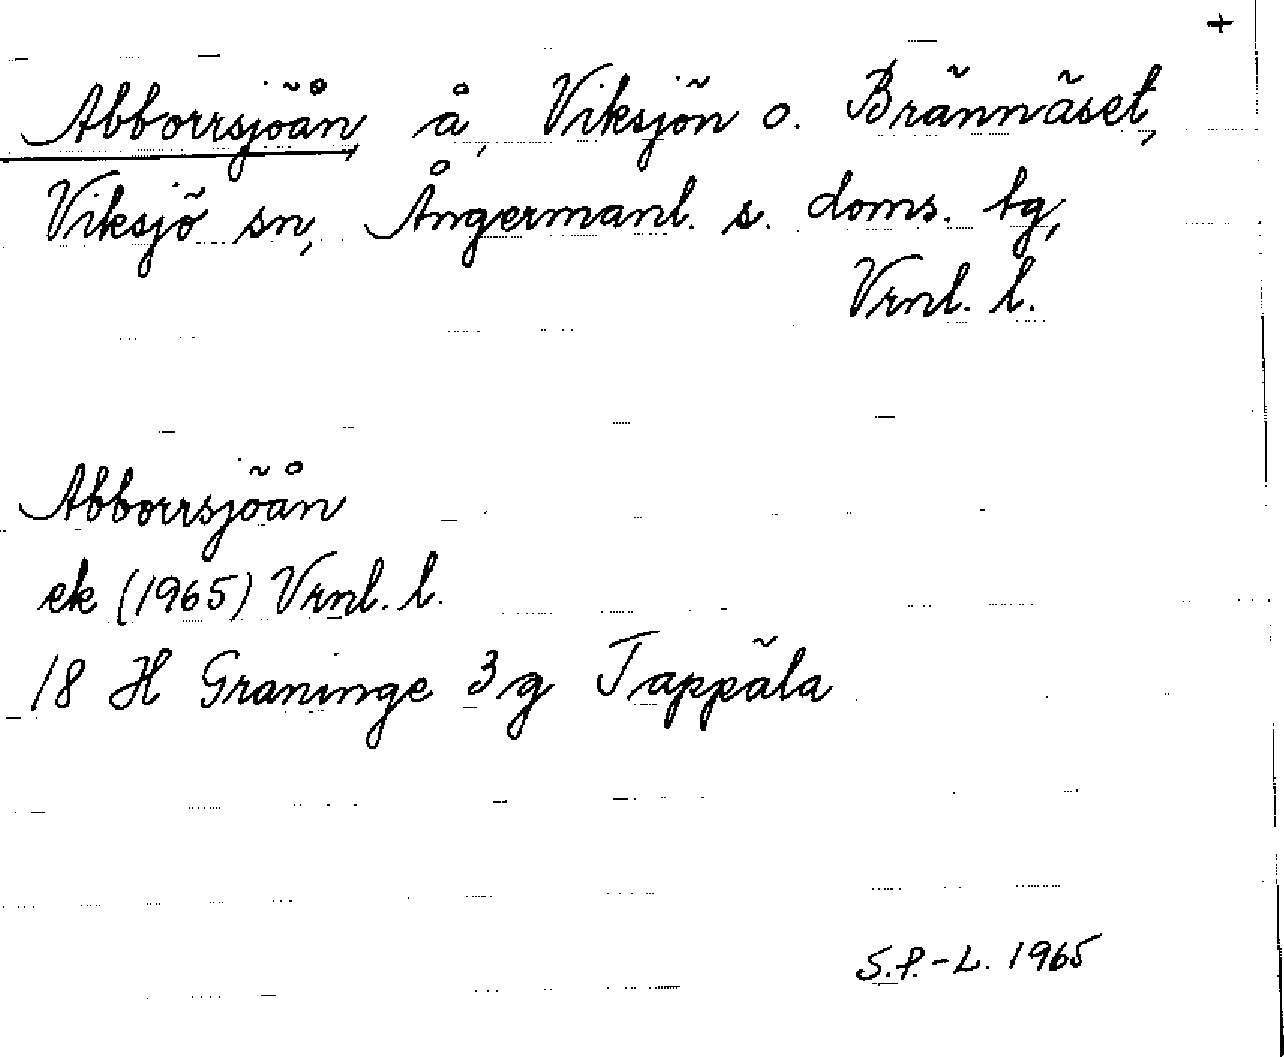 +
Abborrsjöån, å, Viksjön o. Brännäset,
Viksjö sn, Ångermanl. s. doms. tg,
Vrnl. l.
Abborrsjöån
ek (1965) Vrnl. l.
18 H Graninge 3 g Tappäla
S.P.-L. 1965